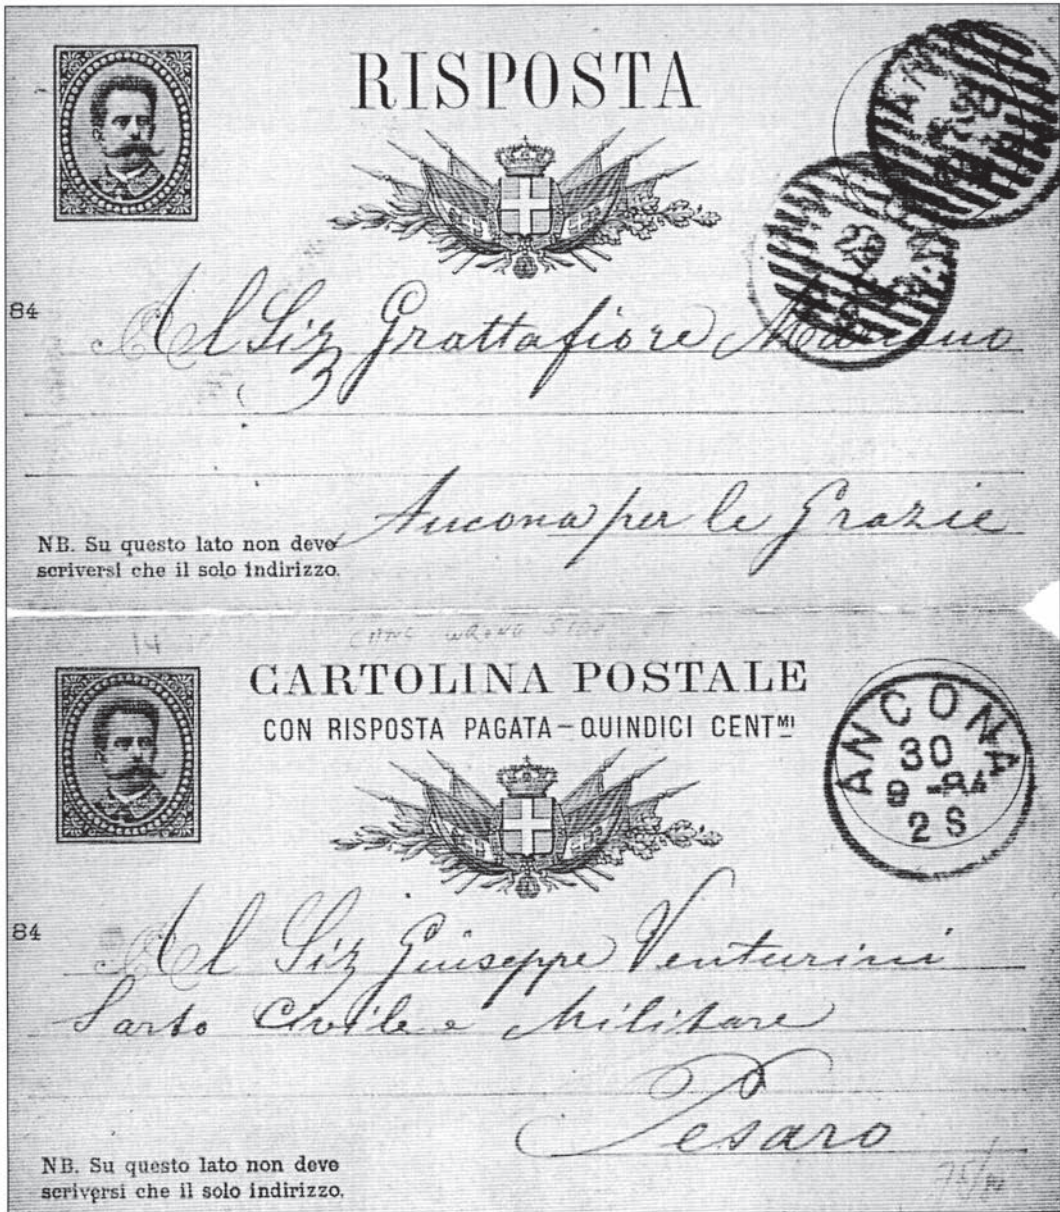 RISPOSTA
29
84
Al Sig Grattafiore
Ancona per le Grazie
NB. Su questo lato non deve
scriversi che il solo indirizzo.
14
WRONG SIDE
CARTOLINA POSTALE
CON RISPOSTA PAGATA – QUINDICI CENTMI
ANCONA
30
9 - 84
2 S
84
Al Sig Giuseppe Venturini
Sarto Civile e Militare
Pesaro
NB. Su questo lato non deve
scriversi che il solo indirizzo.